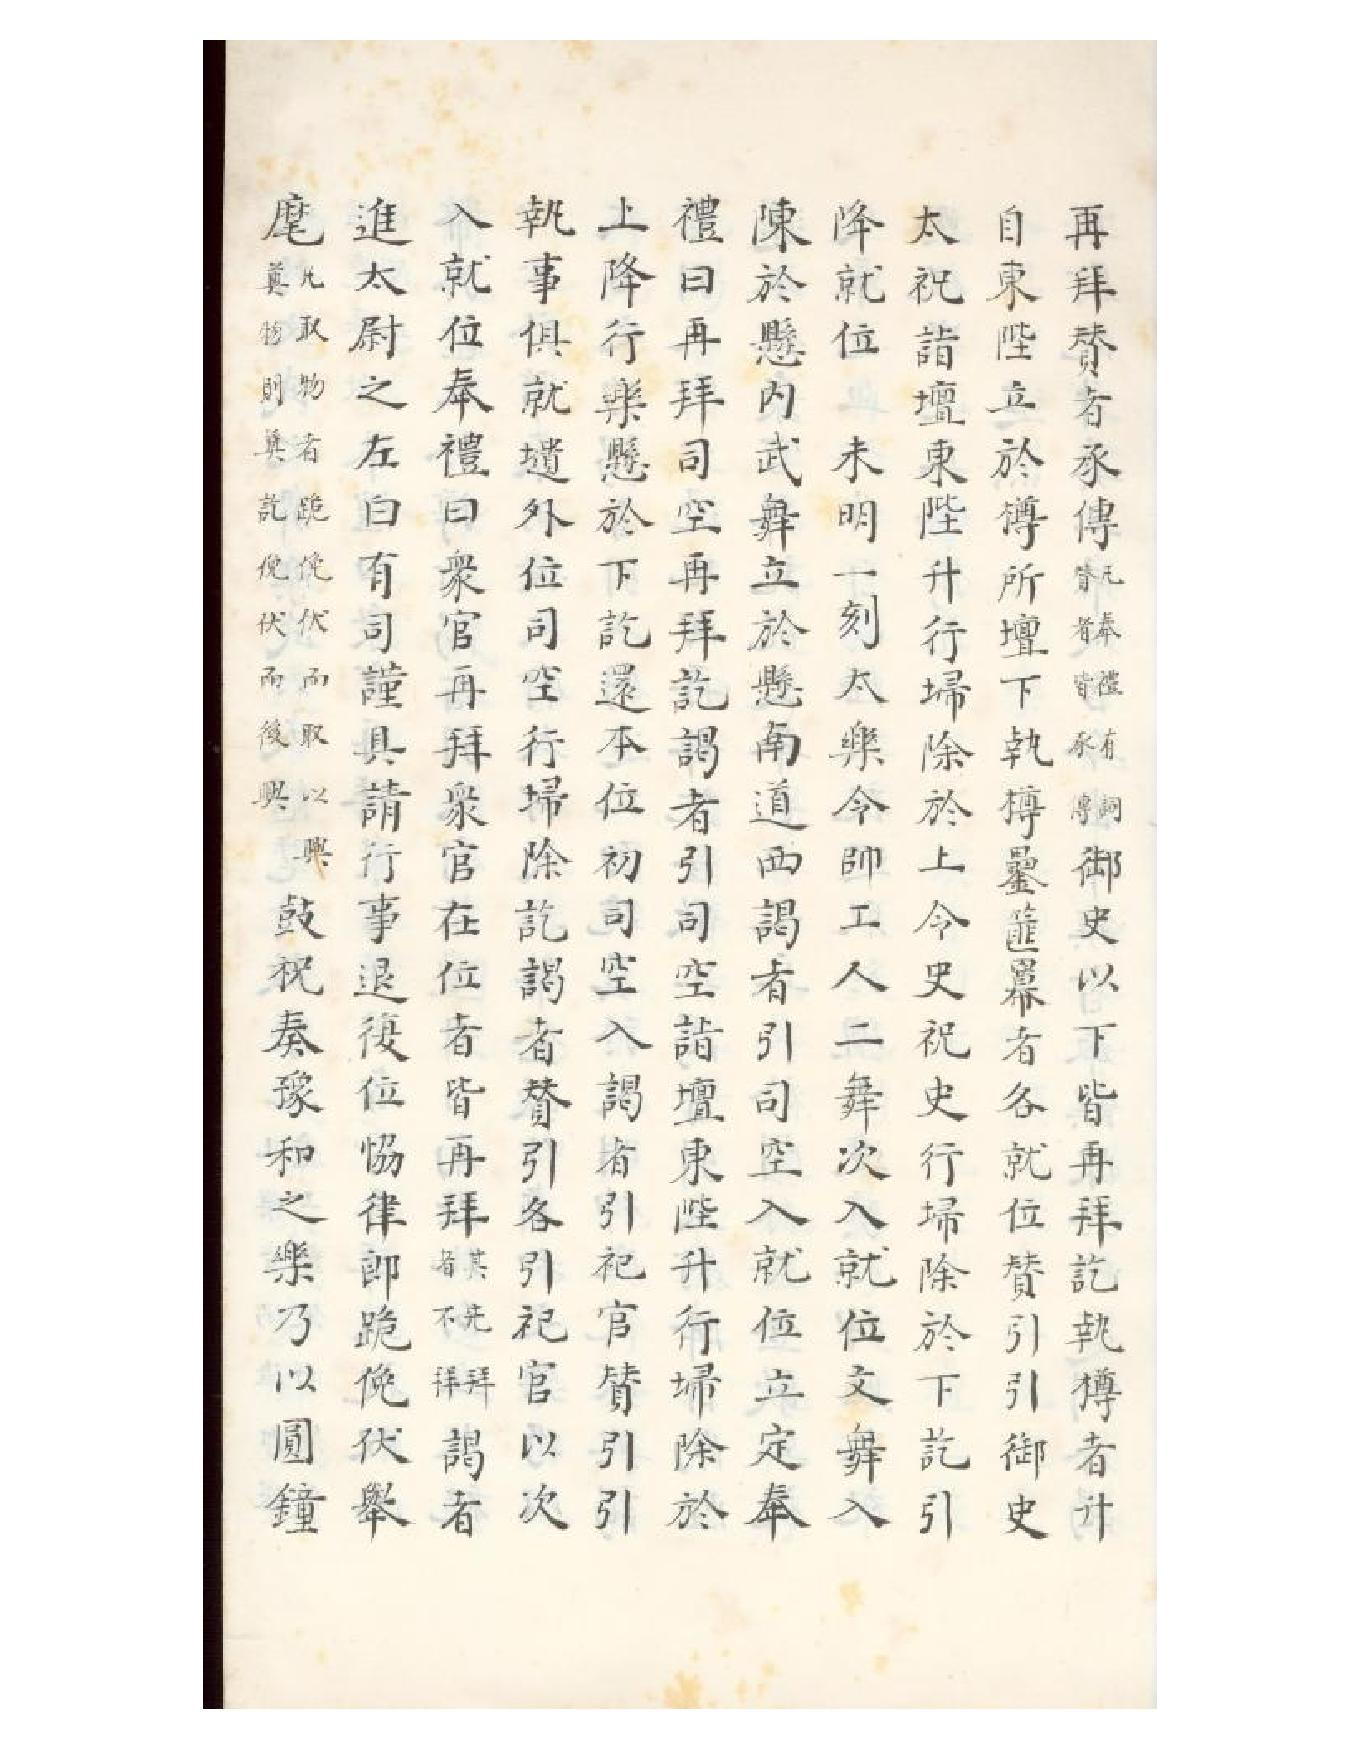 再拜賛者承傳凡奉禮有詞賛者皆承傳御史以下皆再拜訖執樽者升
自東陛立於樽所壇下執樽罍篚羃者各就位賛引引御史
太祝詣壇東陛升行埽除於上令史祝史行埽除於下訖引
降就位未明一刻太樂令帥工人二舞次入就位文舞入
陳於懸內武舞立於懸南道西謁者引司空入就位立定奉
禮曰再拜司空再拜訖謁者引司空詣壇東陛升行埽除於
上降行樂懸於下訖還本位初司空入謁者引祀官賛引引
執事俱就壝外位司空行埽除訖謁者賛引各引祀官以次
入就位奉禮曰衆官再拜衆官在位者皆再拜其先拜者不拜謁者
進太尉之左白有司謹具請行事退復位恊律郎跪俛伏舉
麾凡取物者跪俛伏而取以興奠物則奠訖俛伏而後興鼓柷奏豫和之樂乃以圓鐘